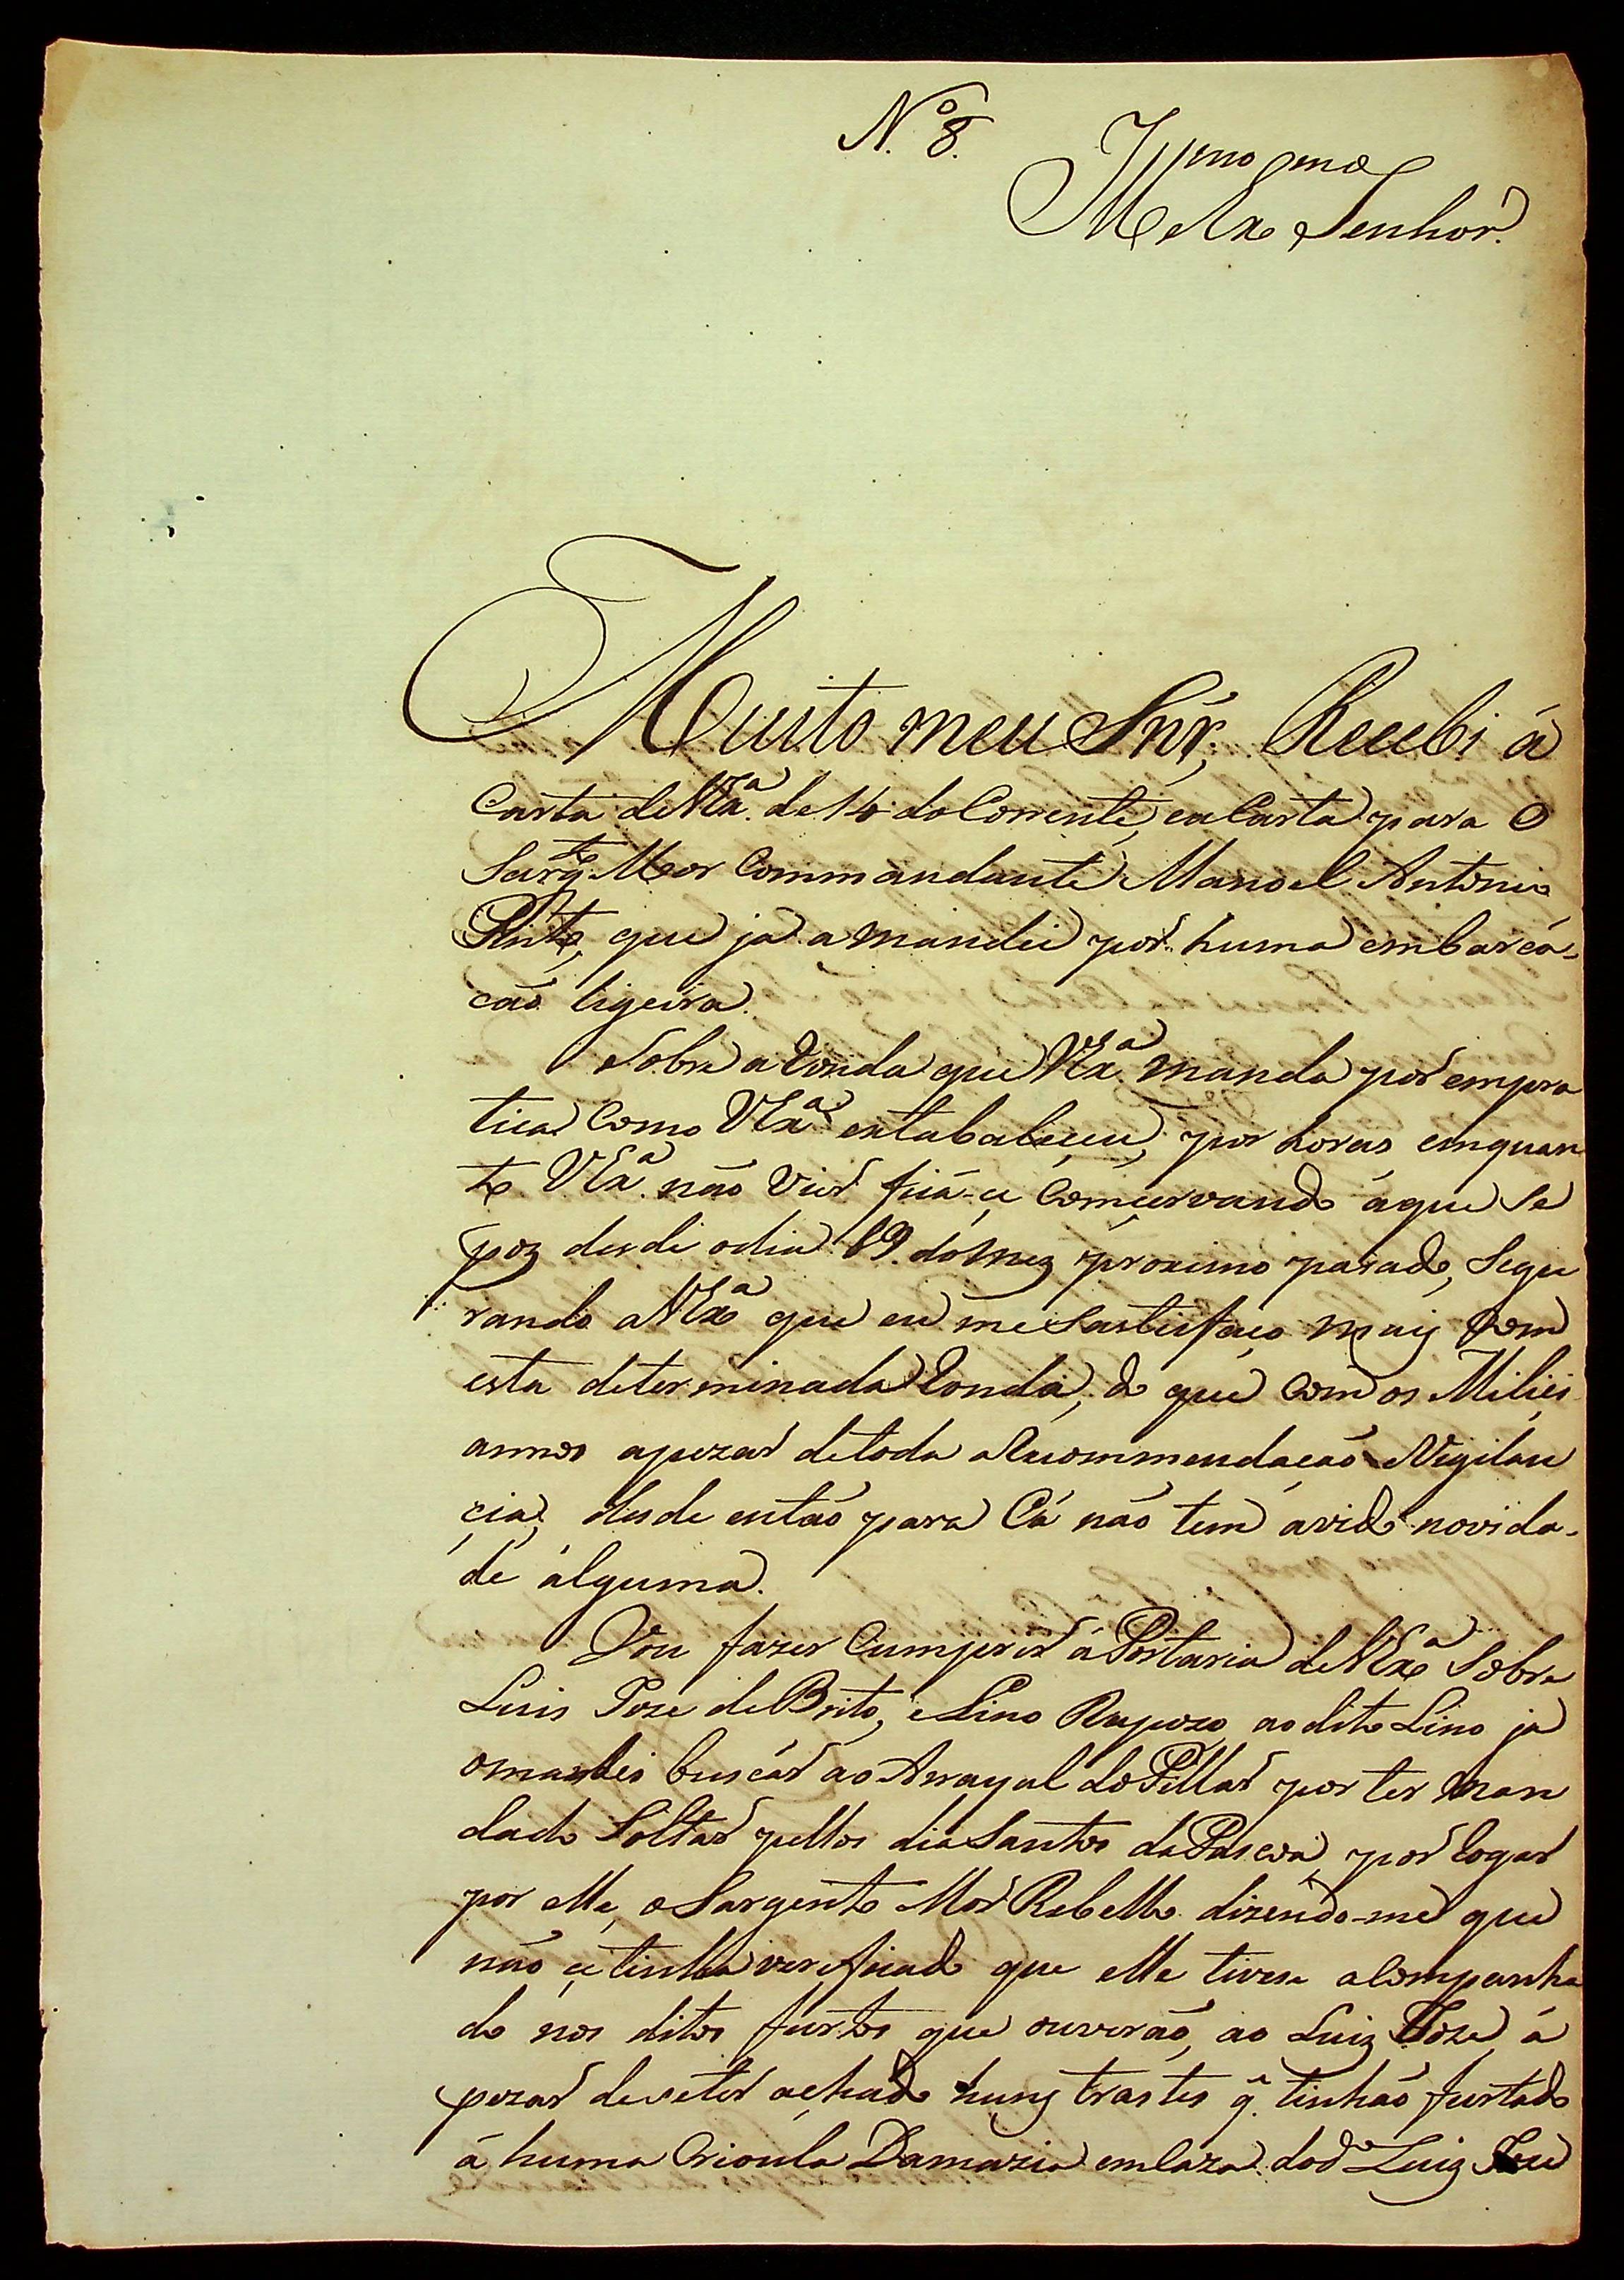 N.º 8.
Illmo e Exmo Senhor.
Muito meu Snr. Recebi á
Carta de VExª. de 14 do Corrente, ea Carta para O
Sargte. Mor Commandante Manoel Antonio
Pinto, que ja a mandei por huma embarca-
cáo ligeira.
Sobre a Ronda que VExª manda por empra
tica Como VExª estabaleceu, por horas emquan
to VExª. não Vier ficá-ce Comcervando áque Se
poz desde odia 19. do Mez proximo pasado, Segu
rando a VExª que eu me Sastisfaço mais Com
esta determinada Ronda, do que Com os Milici
annos apezar detoda a Recommendaçaõ e Vigilan
cia, desde entaõ para Cá naõ tem avido novida-
de alguma.
Vou fazer Cumprir á Portaria de VExª Sobre
Luis Joze de Brito, e Lino Rapozo, ao dito Lino ja
omandei buscár ao Arrayal do Pillar por ter man
dado Soltar pellos dia Santos da Pascoa, por Rogar
por elle, o Sargento Mor Rebello dizendo-me que
naõ ce tinha vereficado que elle tivese acompanha
do nos ditos furtos que ouveraõ, ao Luiz Joze, á
pezar de se ter achado huns trastes q̂. tinhaõ furtado
á huma Crioula Damazia em Caza. do dº Luiz Joze